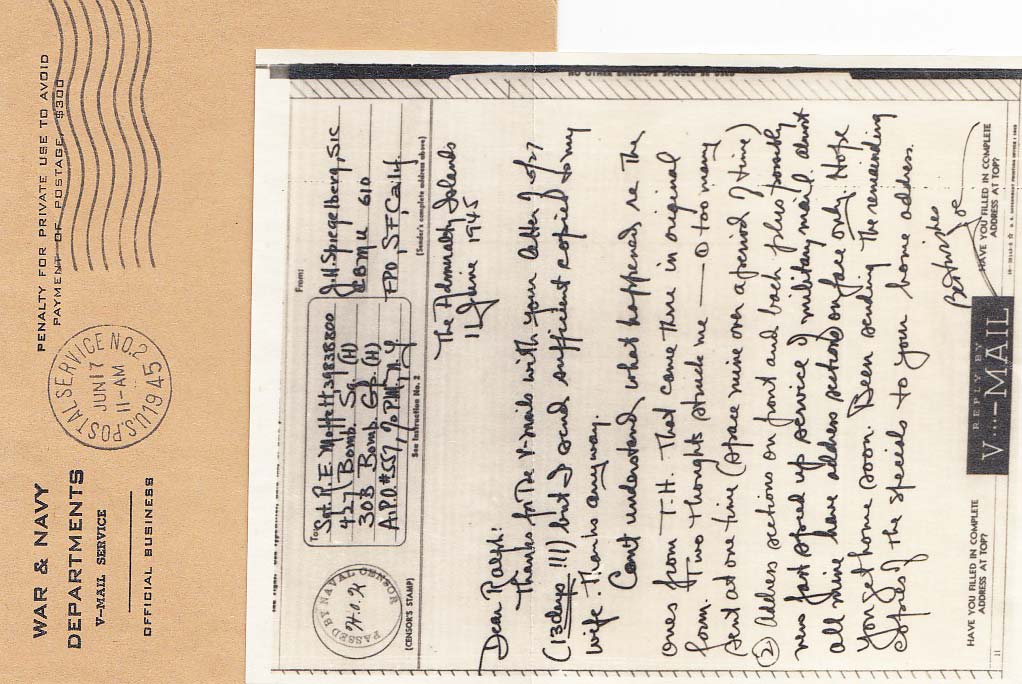 WAR & NAVY
DEPARTMENTS
V-MAIL SERVICE
OFFICIAL BUSINESS
U.S. POSTAL SERVICE NO. 2
JUN 17
11-AM
1945
PENALTY FOR PRIVATE USE TO AVOID
PAYMENT OF POSTAGE, $300
NO OTHER ENVELOPE SHOULD BE USED
PASSED BY NAVAL CENSOR
(CENSOR'S STAMP)
To:
Sgt. R.E. Moffett 39838800
427 Bomb. Sq (H)
303 Bomb. Gp (H)
A.P.O. #557, % P.M., N.Y.
See Instruction No. 2
From:
J.H. Spiegelberg, S1c
CBMU 610
FPO, SF, Calif
(Sender's complete address above)
The Admiralty Islands
11 June 1945
Dear Ralph:
Thanks for the V-mails with your letter of 5/27
(13 days !!!) but I send sufficient copied to my
wife. Thanks anyway.
Can't understand what happened re the
ones from T.H. that came thru in original
form. Two thoughts struck me — ① too many
sent at one time (space mine over a period of time)
② Address sections on front and back plus possibly
new fast speed up service of military mail about
all mine have address sections on face only. Hope
you get home soon. Been sending the remainding
copies of the specials to your home address.
Best wishes
Joe
HAVE YOU FILLED IN COMPLETE
ADDRESS AT TOP?
REPLY BY
V···—MAIL
HAVE YOU FILLED IN COMPLETE
ADDRESS AT TOP?